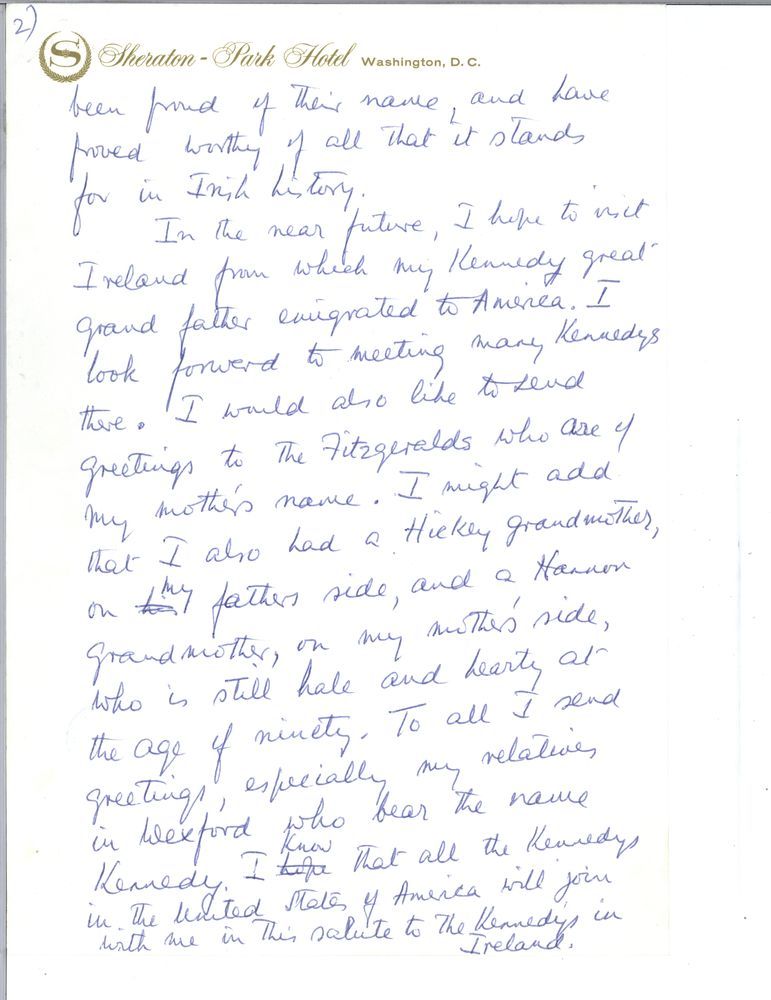 2)
S Sheraton-Park Hotel Washington, D.C.
been proud of their name, and have
proved worthy of all that it stands
for in Irish history.
In the near future, I hope to visit
Ireland from which my Kennedy great
grand father emigrated to America. I
look forward to meeting many Kennedys
there. I would also like to send
greetings to the Fitzgeralds who are of
my mother's name. I might add
that I also had a Hickey grandmother,
on his my fathers side, and a Hannon
Grandmother, on my mother's side,
who is still hale and hearty at
the age of ninety. To all I send
greetings, especially my relatives
in Wexford who bear the name
Kennedy. I hope Know that all the Kennedys
in the United States of America will join
with me in this salute to the Kennedys in
Ireland.